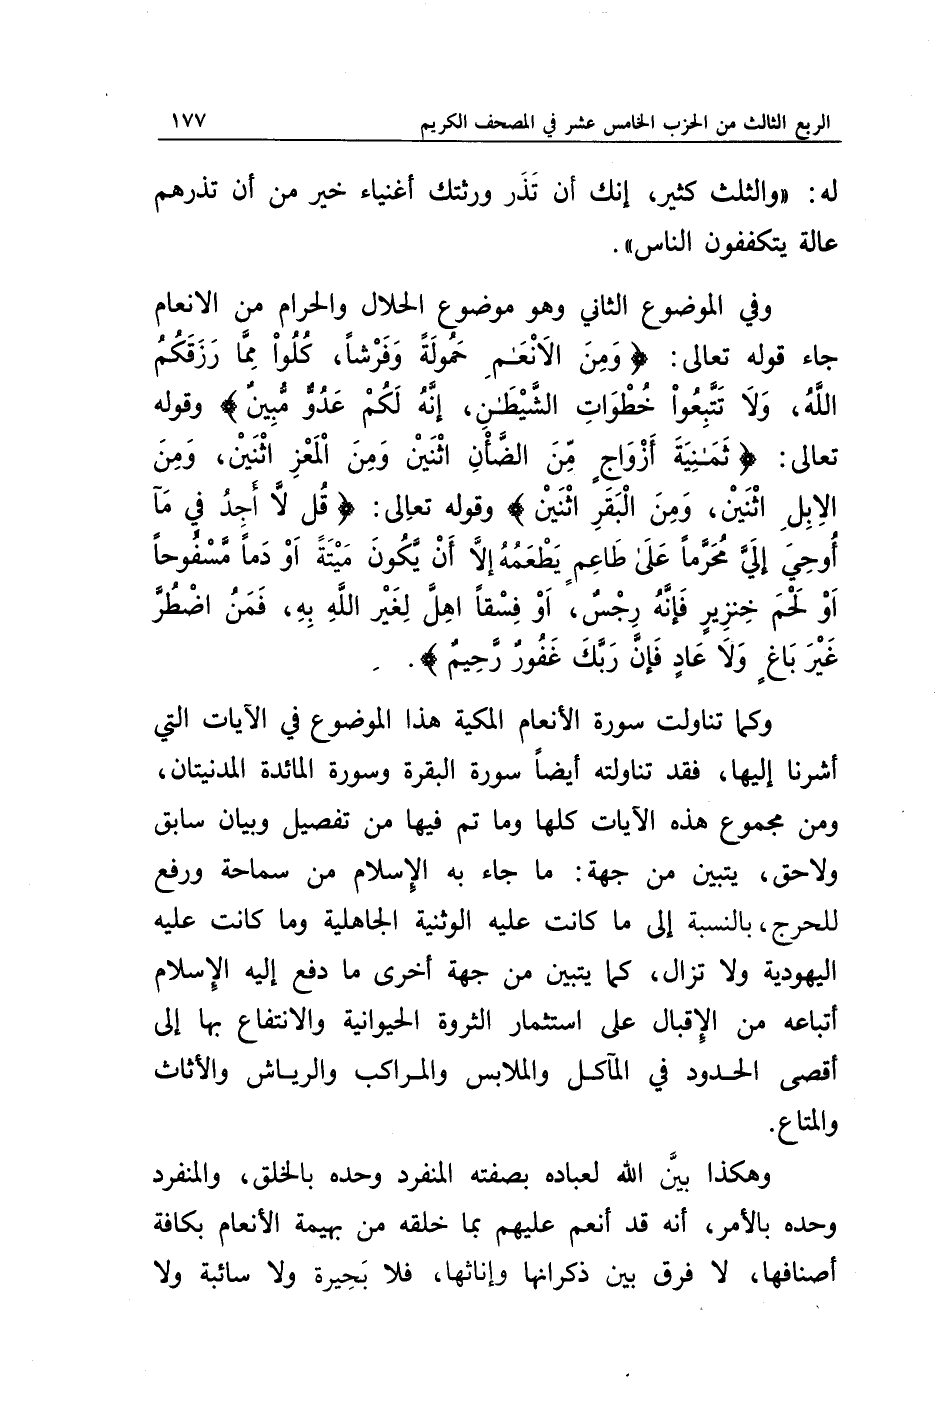 الربع الثالث من الحزب الخامس عشر في المصحف الكريم ١٧٧
له: «والثلث كثير، إنك أن تَذَر ورثتك أغنياء خير من أن تذرهم
عالة يتكففون الناس».
وفي الموضوع الثاني وهو موضوع الحلال والحرام من الانعام
جاء قوله تعالى: ﴿وَمِنَ الَانْعَـٰمِ حَمُولَةً وَفَرْشاً، كُلُواْ مِمَّا رَزَقَكُمُ
اللَّهُ، وَلَا تَتَّبِعُواْ خُطْوَاتِ الشَّيْطَـٰنِ، إِنَّهُ لَكُمْ عَدُوٌّ مُّبِينٌ﴾ وقوله
تعالى: ﴿ثَمَـٰنِيَةَ أَزْوَاجٍ مِّنَ الضَّأْنِ اثْنَيْنِ وَمِنَ الْمَعْزِ اثْنَيْنِ، وَمِنَ
الِابِلِ اثْنَيْنِ، وَمِنَ الْبَقَرِ اثْنَيْنِ﴾ وقوله تعالى: ﴿قُل لَّا أَجِدُ فِي مَآ
أُوحِيَ إِلَيَّ مُحَرَّماً عَلَىٰ طَاعِمٍ يَطْعَمُهُ إِلَّا أَنْ يَّكُونَ مَيْتَةً اَوْ دَماً مَّسْفُوحاً
اَوْ لَحْمَ خِنزِيرٍ فَإِنَّهُ رِجْسٌ، اَوْ فِسْقاً اهِلَّ لِغَيْرِ اللَّهِ بِهِ، فَمَنُ اضْطُرَّ
غَيْرَ بَاغٍ وَلَا عَادٍ فَإِنَّ رَبَّكَ غَفُورٌ رَّحِيمٌ﴾.
وكما تناولت سورة الأنعام المكية هذا الموضوع في الآيات التي
أشرنا إليها، فقد تناولته أيضاً سورة البقرة وسورة المائدة المدنيتان،
ومن مجموع هذه الآيات كلها وما تم فيها من تفصيل وبيان سابق
ولاحق، يتبين من جهة: ما جاء به الإسلام من سماحة ورفع
للحرج، بالنسبة إلى ما كانت عليه الوثنية الجاهلية وما كانت عليه
اليهودية ولا تزال، كما يتبين من جهة أخرى ما دفع إليه الإسلام
أتباعه من الإقبال على استثمار الثروة الحيوانية والانتفاع بها إلى
أقصى الحدود في المآكل والملابس والمراكب والرياش والأثاث
والمتاع.
وهكذا بيَّن الله لعباده بصفته المنفرد وحده بالخلق، والمنفرد
وحده بالأمر، أنه قد أنعم عليهم بما خلقه من بهيمة الأنعام بكافة
أصنافها، لا فرق بين ذكرانها وإناثها، فلا بَحِيرة ولا سائبة ولا